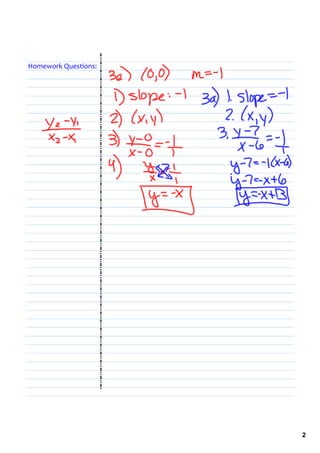 Homework Questions:
y₂-y₁
x₂-x₁
3a) (0,0) m=-1
1) slope: -1
2) (x,y)
3) y-0 = -1
x-0 1
4) y -1
x 1
y=-x
3a) 1. slope=-1
2. (x,y)
3. y-7 = -1
x-6 1
y-7=-1(x-6)
y-7=-x+6
y=-x+13
2